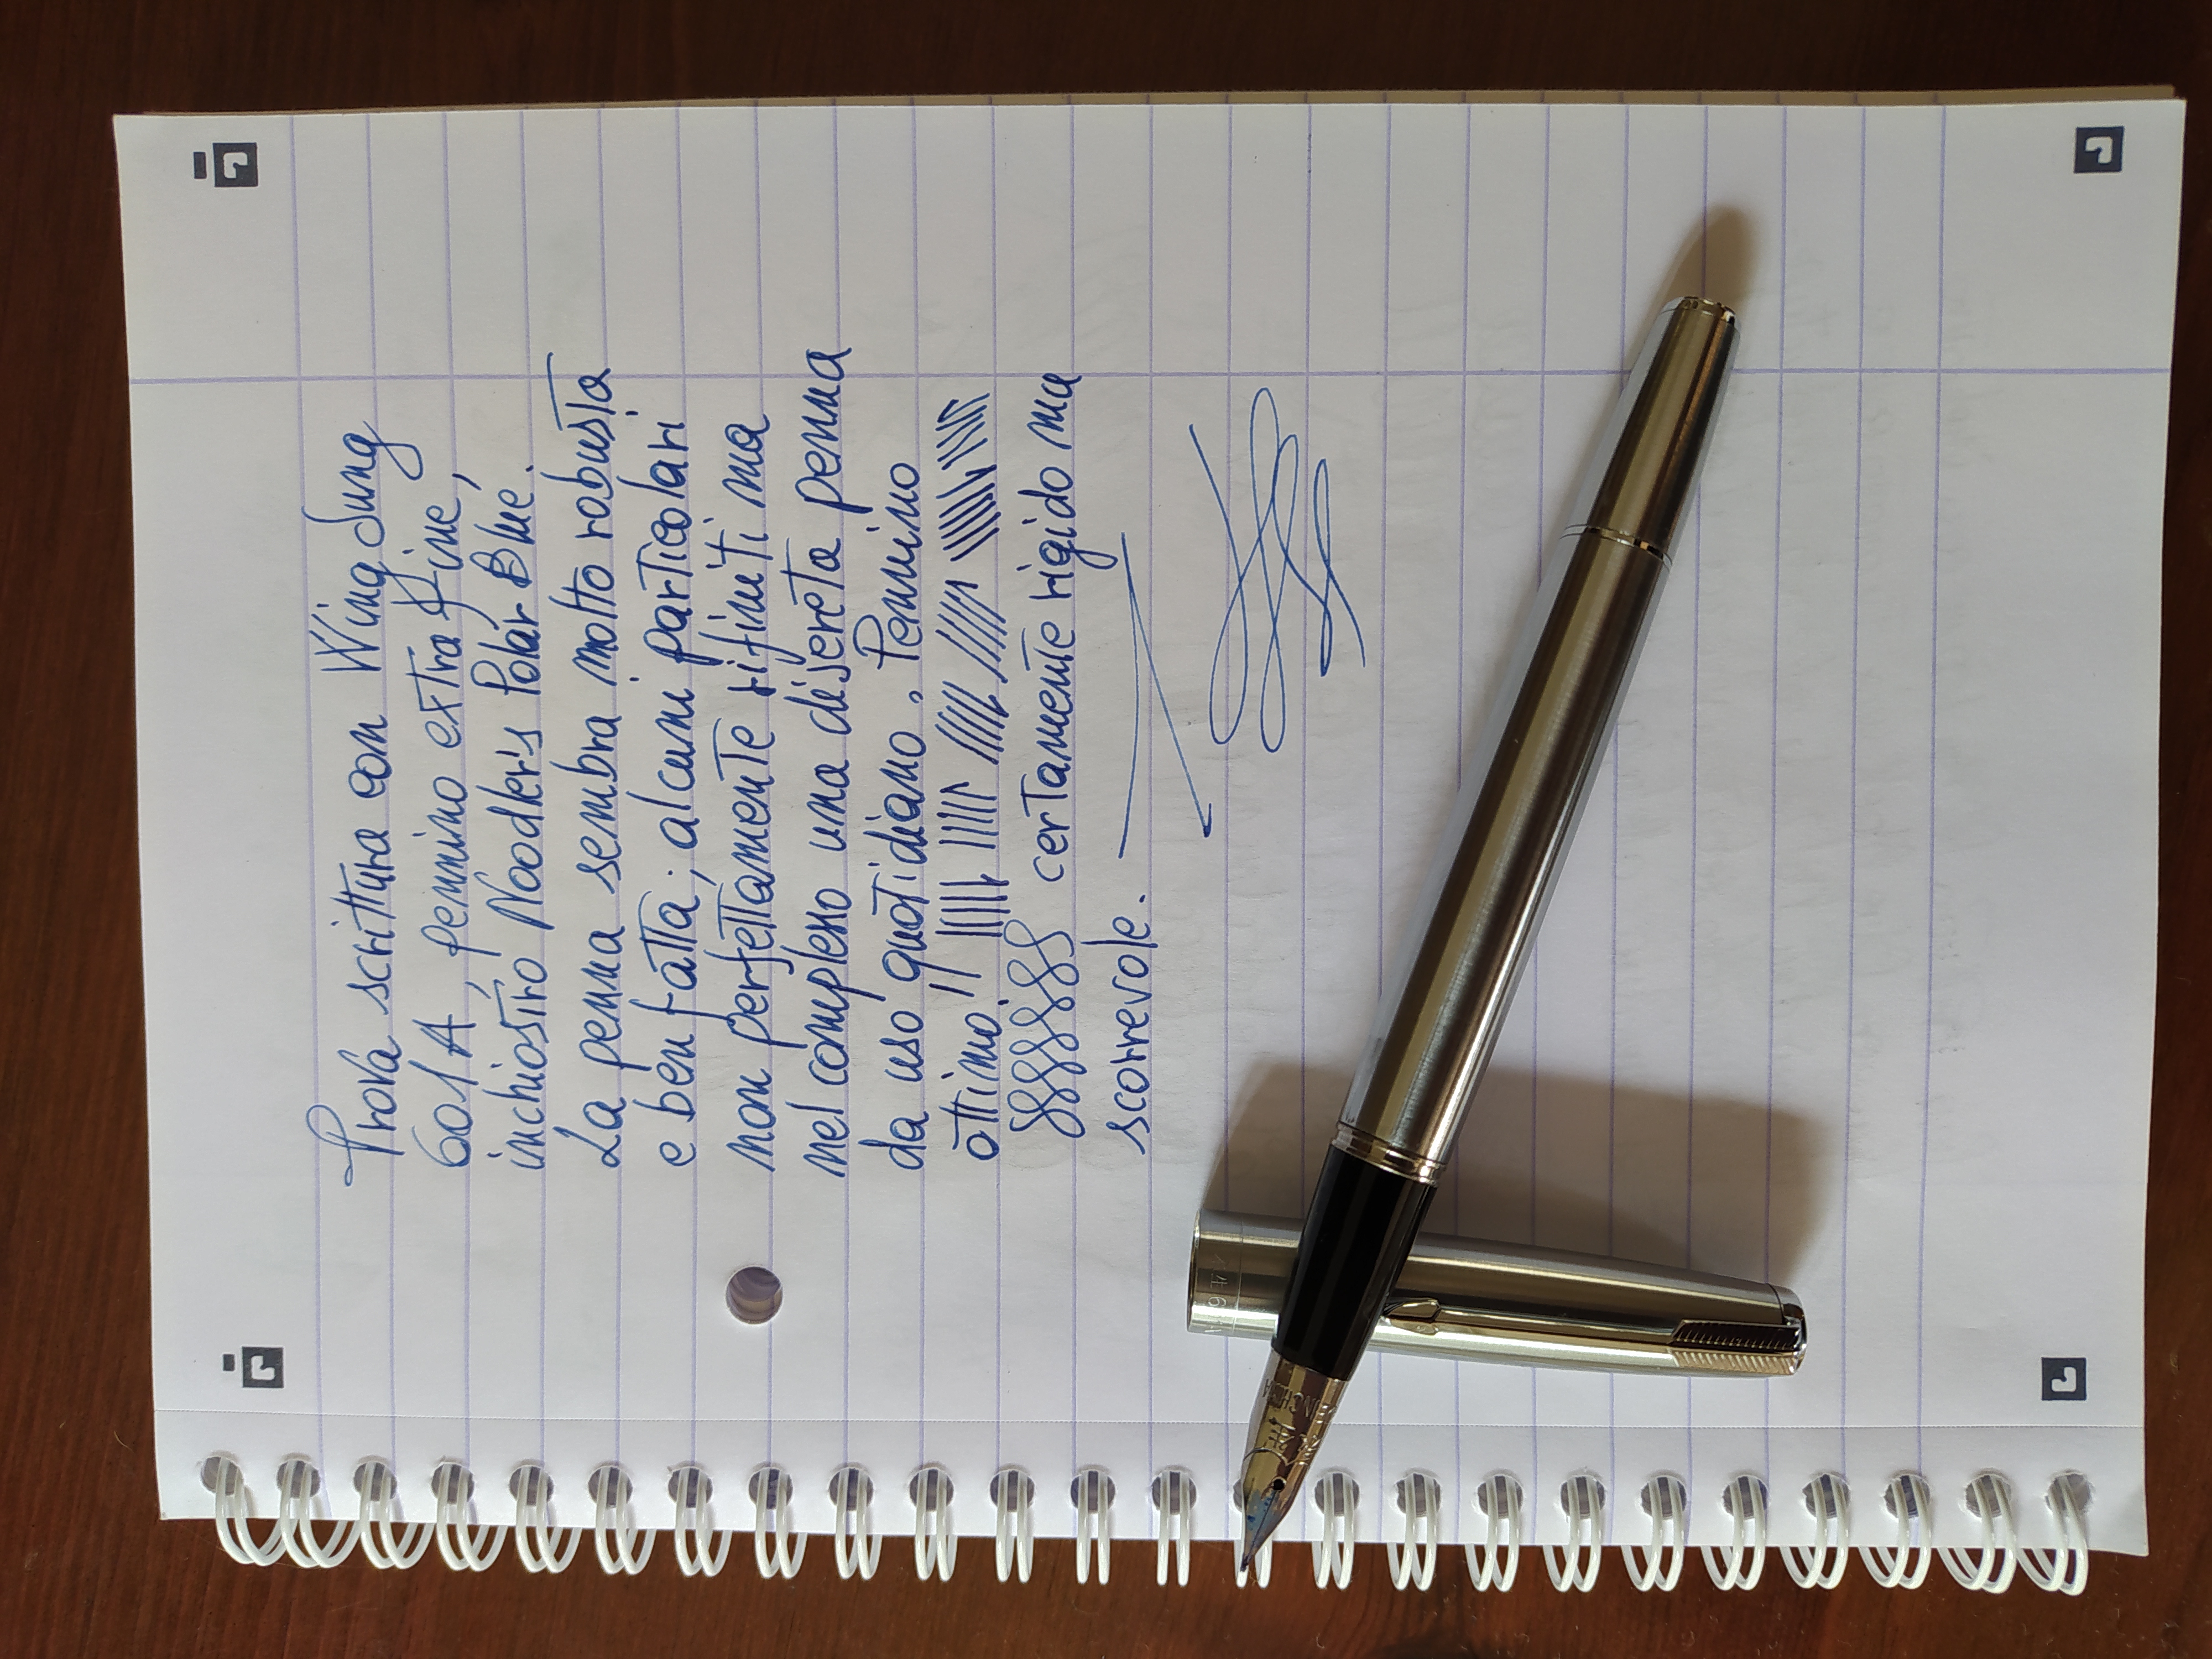 Prova scrittura con Wing Sung
601A, pennino extra fine,
inchiostro Noodler's Polar Blue.
La penna sembra molto robusta
e ben fatta; alcuni particolari
non perfettamente rifiniti ma
nel complesso una discreta penna
da uso quotidiano. Pennino
ottimo,
certamente rigido ma
scorrevole.